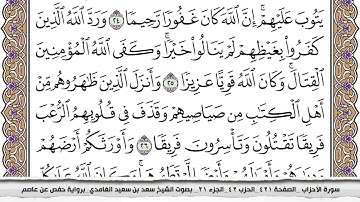 يَتُوبَ عَلَيْهِمْ ۚ إِنَّ اللَّهَ كَانَ غَفُورًا رَّحِيمًا ﴿٢٤﴾ وَرَدَّ اللَّهُ الَّذِينَ
كَفَرُوا بِغَيْظِهِمْ لَمْ يَنَالُوا خَيْرًا ۚ وَكَفَى اللَّهُ الْمُؤْمِنِينَ
الْقِتَالَ ۚ وَكَانَ اللَّهُ قَوِيًّا عَزِيزًا ﴿٢٥﴾ وَأَنزَلَ الَّذِينَ ظَاهَرُوهُم مِّنْ
أَهْلِ الْكِتَابِ مِن صَيَاصِيهِمْ وَقَذَفَ فِي قُلُوبِهِمُ الرُّعْبَ
فَرِيقًا تَقْتُلُونَ وَتَأْسِرُونَ فَرِيقًا ﴿٢٦﴾ وَأَوْرَثَكُمْ أَرْضَهُمْ
سورة الأحزاب _الصفحة ٤٢١_ الحزب ٤٢_ الجزء ٢١ _ بصوت الشيخ سعد بن سعيد الغامدي _برواية حفص عن عاصم